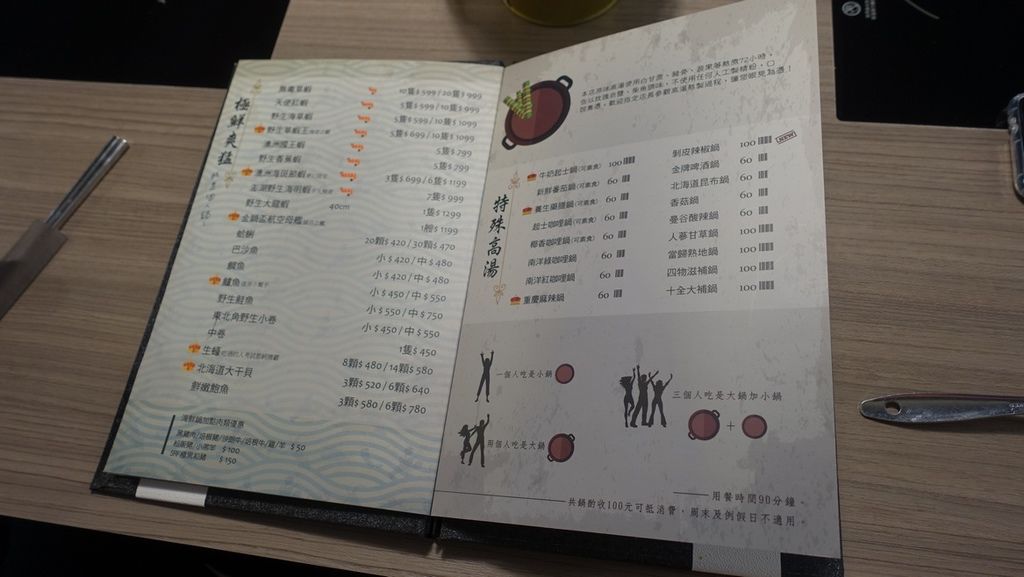 極鮮爽猛
無毒草蝦 10隻$599/20隻$999
天使紅蝦 5隻$599/10隻$999
野生海草蝦 5隻$599/10隻$1099
野生草蝦王 5隻$699/10隻$1099
澳洲國王蝦 5隻$299
野生香蕉蝦 5隻$299
澳洲海斑節蝦 3隻$699/6隻$1199
澎湖野生海明蝦 7隻$999
野生大龍蝦 40cm 1隻$1299
金鍋盃航空母艦 1艘$1199
蛤蜊 20顆$420/30顆$470
巴沙魚 小$420/中$480
鯛魚 小$420/中$480
鱸魚 小$450/中$550
野生鮭魚 小$550/中$750
東北角野生小卷 小$450/中$550
中卷 1隻$450
生蠔 8顆$480/14顆$580
北海道大干貝 3顆$520/6顆$640
鮮嫩鮑魚 3顆$580/6顆$780
海鮮鍋加點肉類優惠
$50
$100
$150
特殊高湯
牛奶起士鍋(可素食) 100
新鮮番茄鍋(可素食) 60
養生藥膳鍋(可素食) 60
起士咖哩鍋(可素食) 60
椰香咖哩鍋(可素食) 60
南洋綠咖哩鍋 60
南洋紅咖哩鍋 60
重慶麻辣鍋 60
剝皮辣椒鍋 100 NEW
金牌啤酒鍋 60
北海道昆布鍋 60
香菇鍋 60
曼谷酸辣鍋 60
人蔘甘草鍋 100
當歸熟地鍋 100
四物滋補鍋 100
十全大補鍋 100
一個人吃是小鍋
兩個人吃是大鍋
三個人吃是大鍋加小鍋
+
用餐時間90分鐘。
共鍋酌收100元可抵消費，周末及例假日不適用。